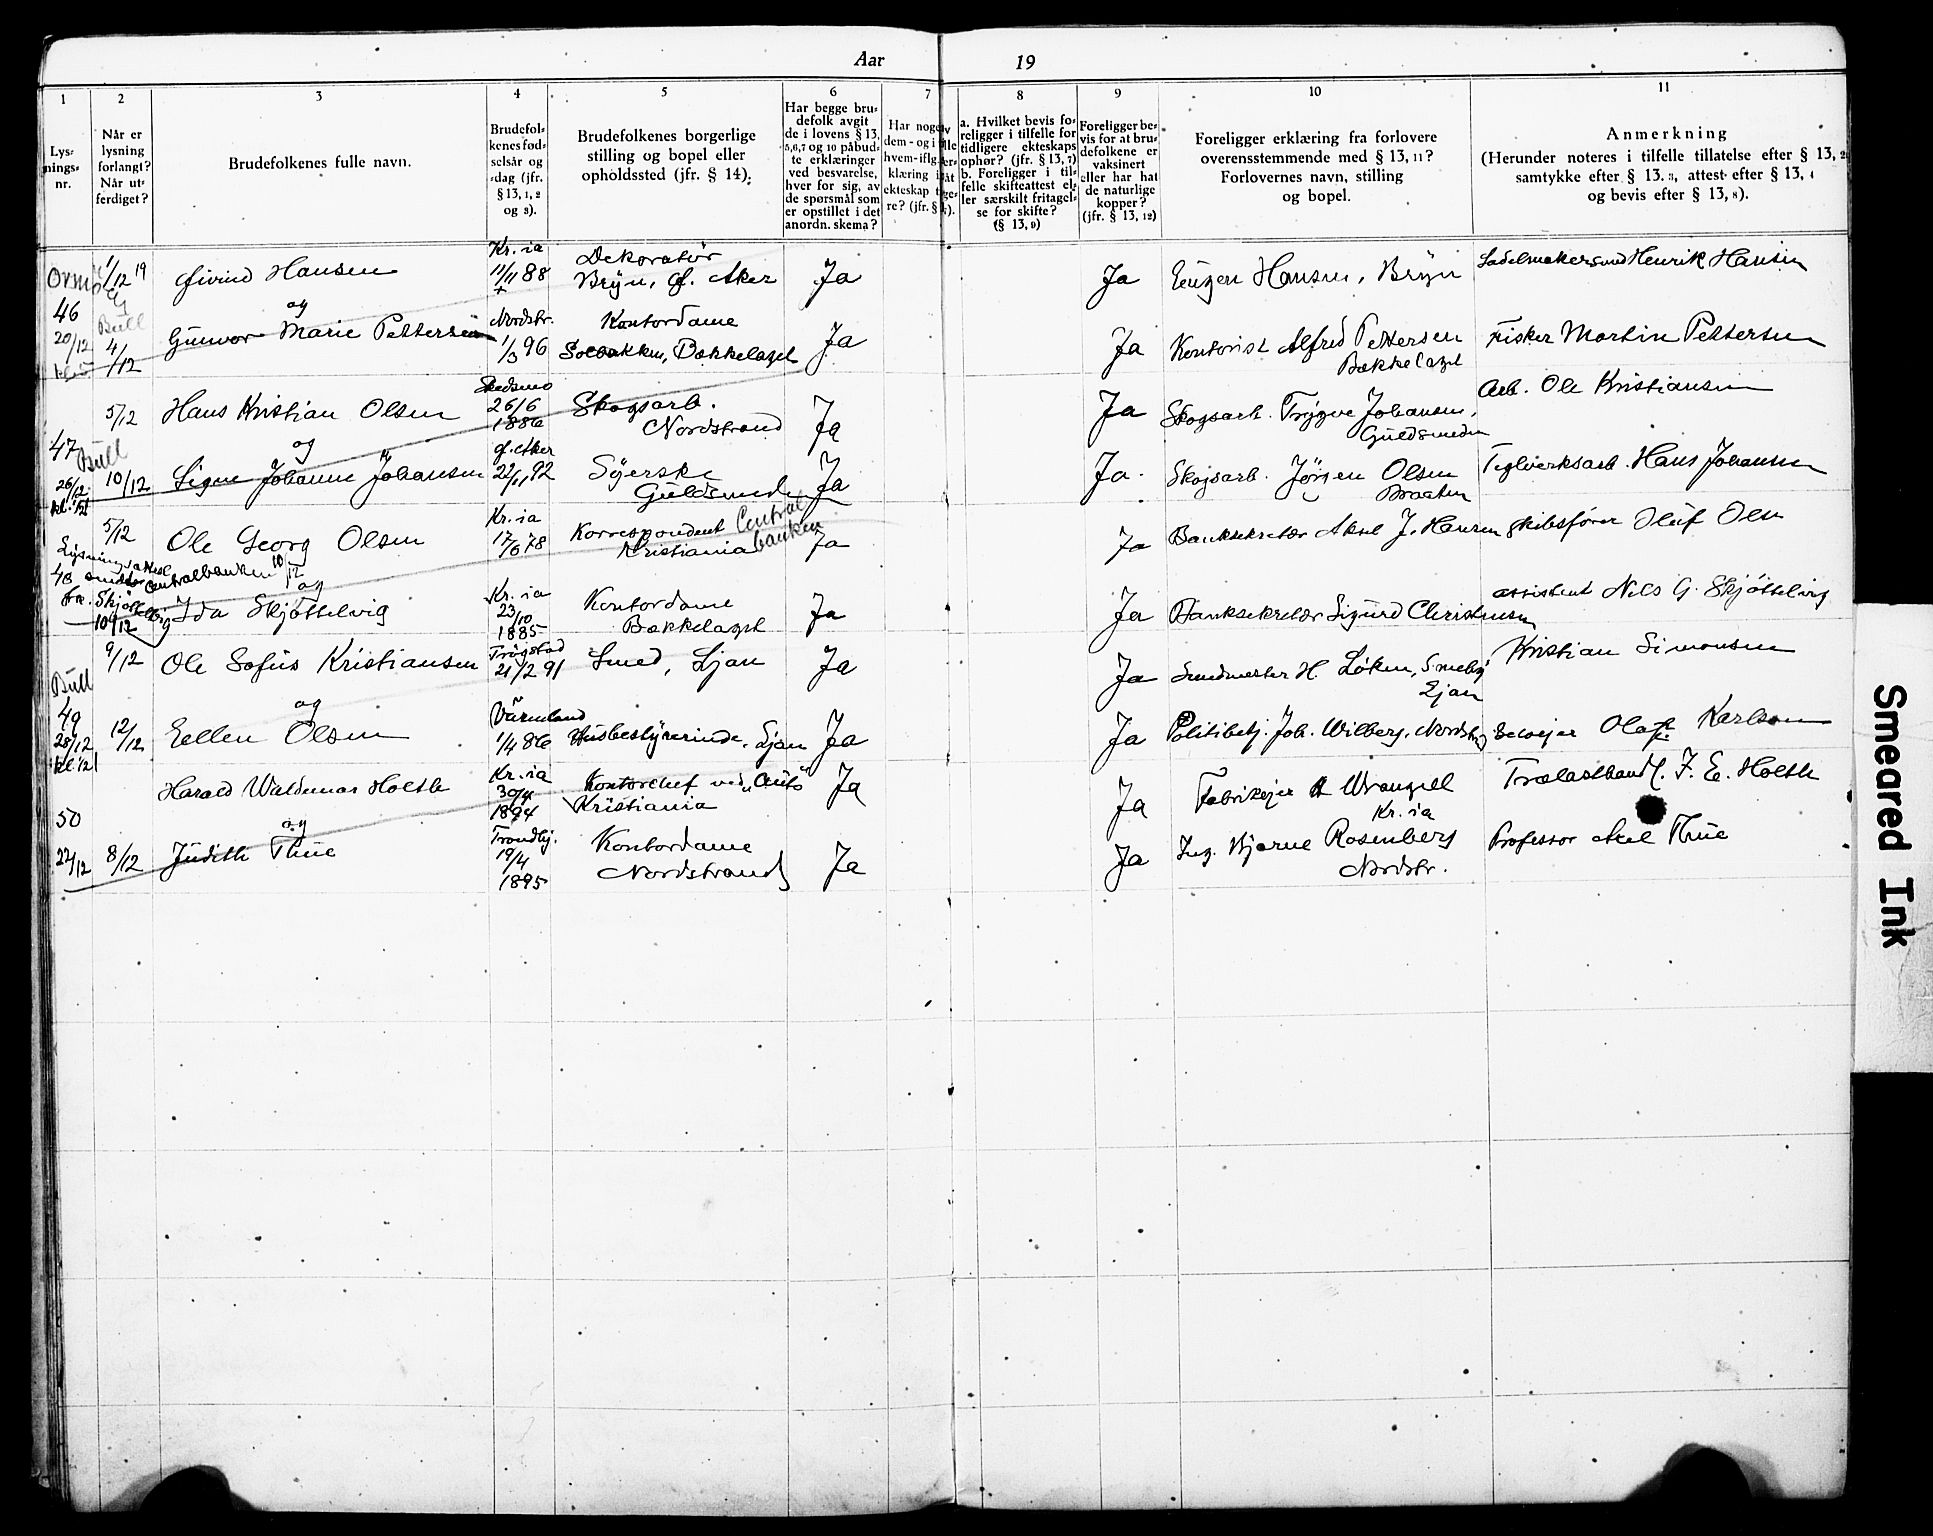 Aar 19
1 2 3 4 5 6 7 8 9 10 11
Lys-
nings-
nr.
Når er
lysning
forlangt?
Når ut-
ferdiget?
Brudefolkenes fulle navn.
Brudefol-
kenes fød-
selsår og
-dag (jfr.
§ 13, 1, 2
og 3).
Brudefolkenes borgerlige
stilling og bopel eller
opholdssted (jfr. § 14).
Har begge bru-
defolk avgit
de i lovens § 13,
5,6,7 og 10 påbud-
te erklæringer
ved besvarelse,
hver for sig, av
de spørsmål som
er opstillet i det
anordn. skema?
Har nogen av
dem - og i tilfelle
hvem - iflg. er-
klæring i
ekteskap
re? (jfr. §
a. Hvilket bevis fo-
religger i tilfelle for
tidligere ekteskaps
ophør? (jfr. § 13, 7)
b. Foreligger i til-
felle skifteattest el-
ler særskilt fritagel-
se for skifte?
(§ 13, 9)
Foreligger be-
vis for at bru-
defolkene er
vaksinert
eller har hat
de naturlige
kopper?
(jfr. § 13, 12)
Foreligger erklæring fra forlovere
overensstemmende med § 13, 11?
Forlovernes navn, stilling
og bopel.
Anmerkning
(Herunder noteres i tilfelle tillatelse efter § 13, 2,
samtykke efter § 13, 3, attest efter § 13, 4
og bevis efter § 13, 8).
1/12 19 Øivind Hansen Kr.ia 11/11 88 Dekoratør
Bryn, Ø. Aker Ja Ja Eugen Hansen, Bryn Sadelmakersvend Henrik Hansen
46 og
20/12 4/12 Gunvor Marie Pettersen Nordstr. 1/3 96 Kontordame
Solbakken, Bækkelaget Ja Ja Kontorist Alfred Pettersen
Bækkelaget Fisker Martin Pettersen
5/12 Hans Kristian Olsen Skedsmo
26/6
1886 Skogsarb.
Nordstrand Ja Ja Skogsarb. Trygve Johansen,
Guldsmeden Arb. Ole Kristiansen
47 Bull og
26/12 10/12 Signe Johanne Johansen Ø. Aker
22/11 92 Syerske
Guldsmeden Ja Ja. Skogsarb. Jørgen Olsen
Braaten Teglverksarb. Hans Johansen
kl. 12
5/12 Ole Georg Olsen Kr.ia
17/6 78 Korrespondent Central
Kristiania banken Ja Ja Banksekretær Aksel J. Hansen Skibsfører Oluf Olsen
Lysningsattest
48 sendt Centralbanken 10/12
fr. Skjøttelvig og
10/12 Ida Skjøttelvig Kr.ia
23/10
1885 Kontordame
Bækkelaget Ja Ja Banksekretær Sigurd Christensen assistent Nils G. Skjøttelvig
9/12 Ole Sofus Kristiansen Trøgstad
21/2 91 Smed, Ljan Ja Ja Smedmester H. Løken, Smeby
Ljan Kristian Simonsen
Bull
49 og
28/12 12/12 Eellen Olsen Värmland
1/4 86 Husbestyrerinde, Ljan Ja Ja Politibetj. Joh. Wilberg, Nordstr. Olaf Karlson
kl. 12
Harald Waldemar Holtle Kr.ia
30/4
1894 Kontorchef ved "Auto"
Kristiania Ja Ja Fabrikeier A Wrangell
Kr.ia Trælasthandl. F. E. Holtle
50 og
22/12 8/12 Judith Thue Trondhj.
19/4
1895 Kontordame
Nordstrand Ja Ja Ing. Bjarne Rosenberg
Nordstr. Professor Axel Thue
Smeared Ink